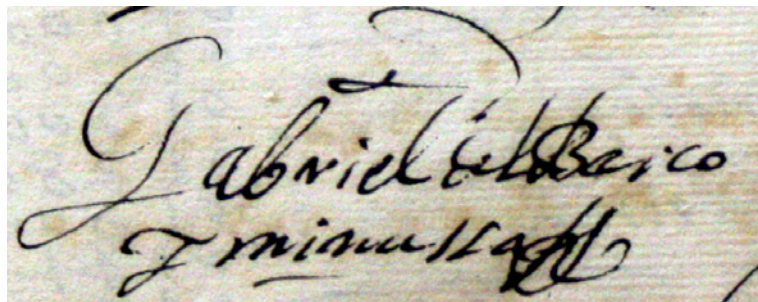 Gabriel del Barco
y minuscas